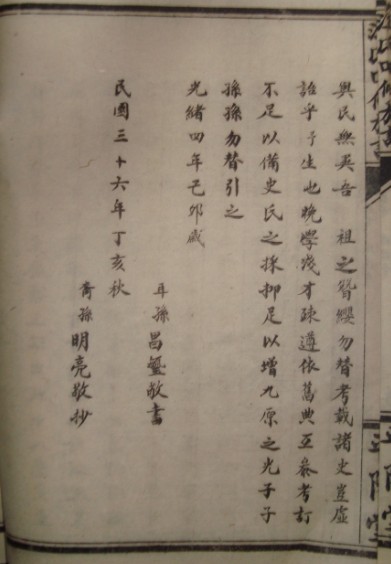 與民無異吾 祖之簪纓勿替考載諸史豈虛
誑乎予生也晚學淺才疎遵依舊典互參考訂
不足以備史氏之採抑足以增九原之光子子
孫孫勿替引之
光緒四年己卯歲
耳孫昌璽敬書
民國三十六年丁亥秋
裔孫明亮敬抄
平陽堂